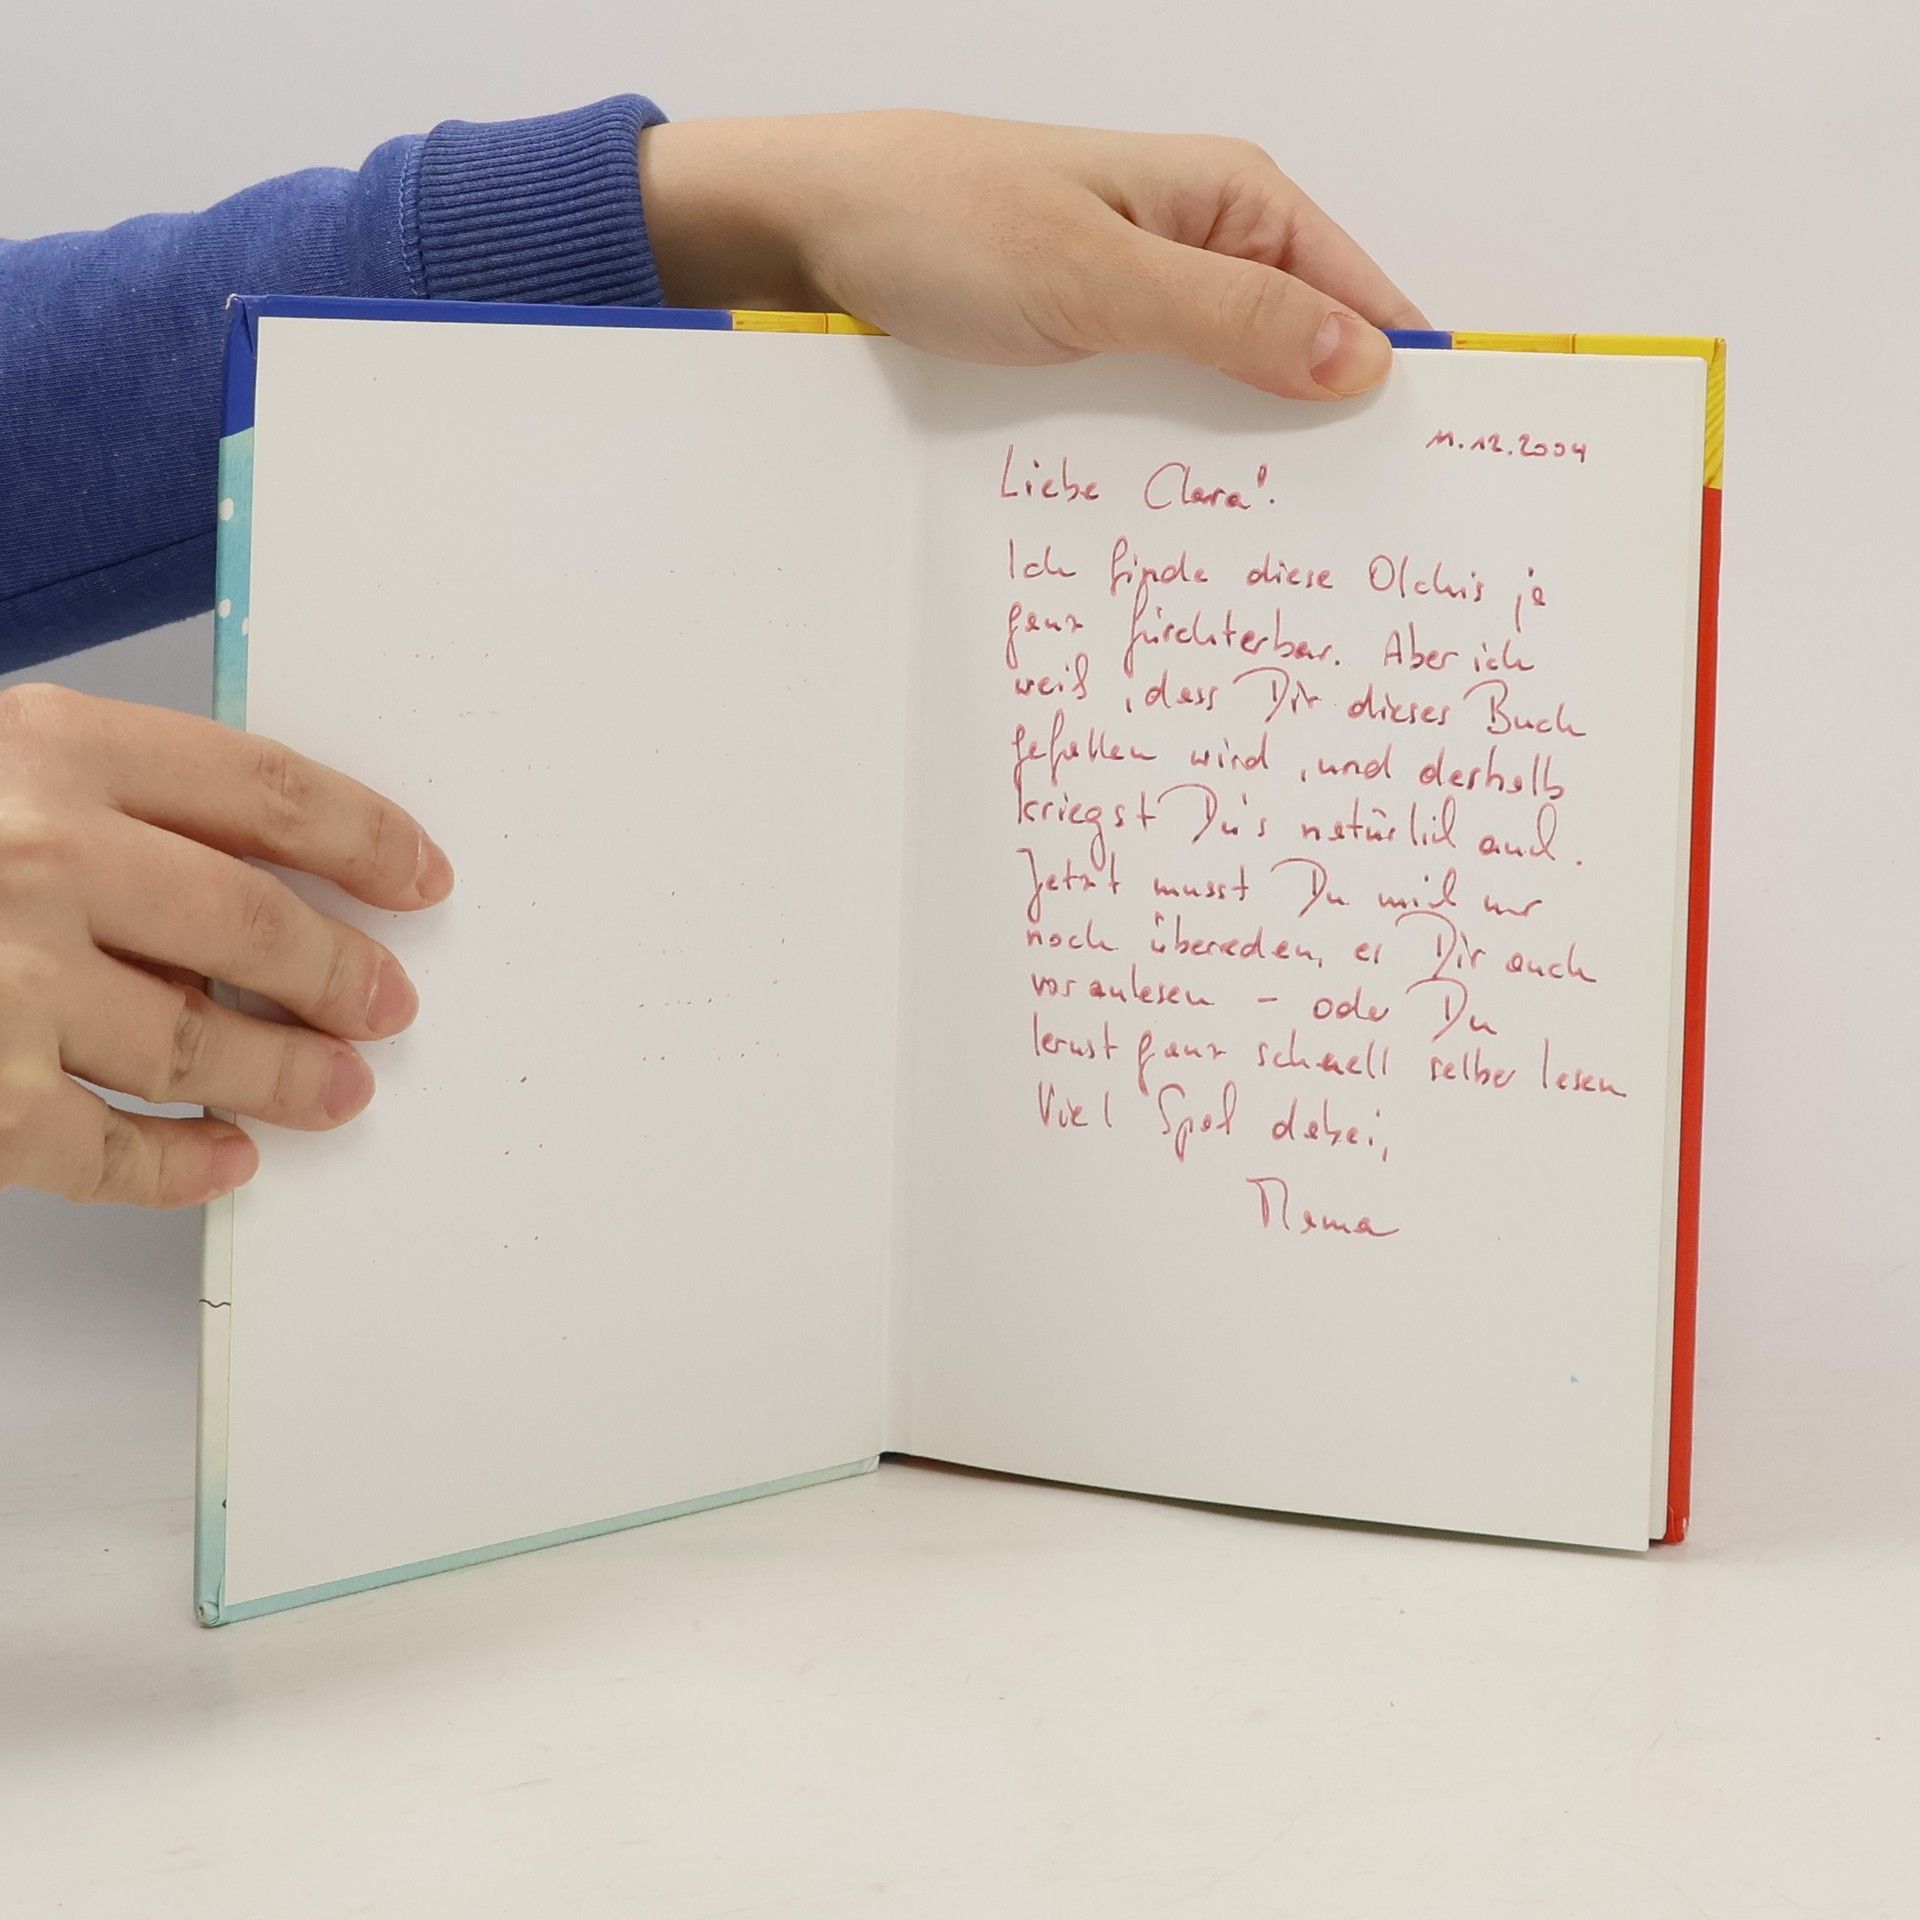 11.12.2004
Liebe Clara!
Ich finde diese Olchis ja
ganz fürchterbar. Aber ich
weiß, dass Dir dieses Buch
gefallen wird, und deshalb
kriegst Du's natürlich auch.
Jetzt musst Du mich nur
noch überreden, es Dir auch
vorzulesen – oder Du
lernst ganz schnell selber lesen
Viel Spaß dabei,
Mama